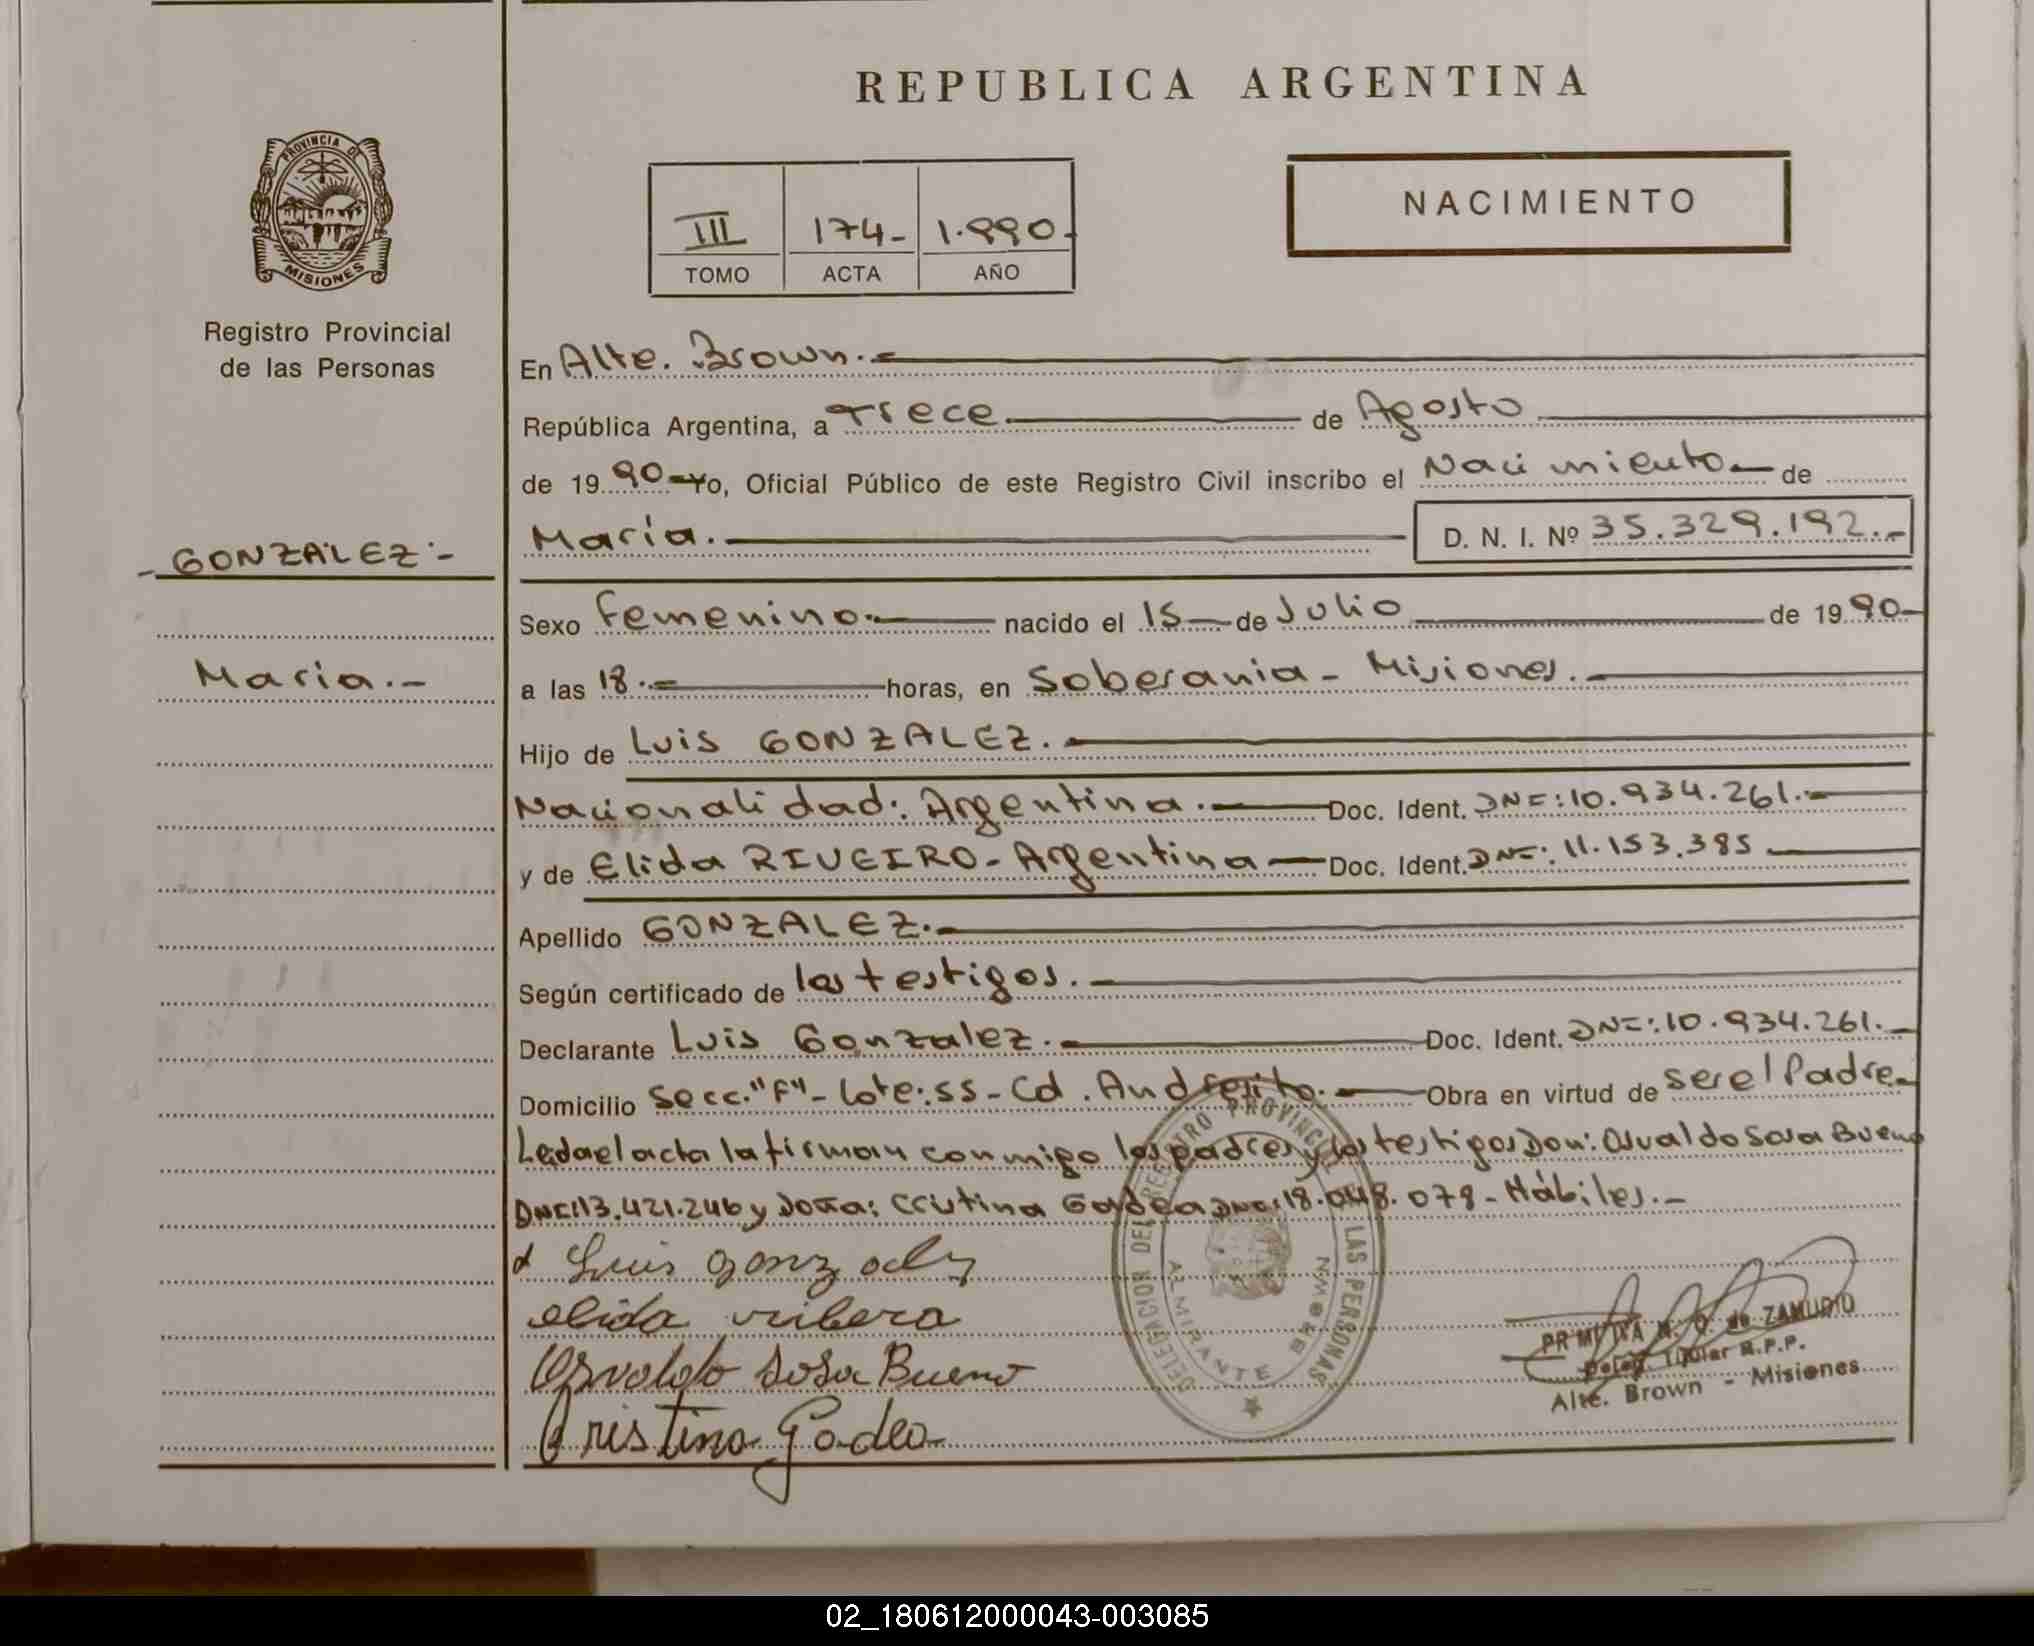 REPUBLICA ARGENTINA
PROVINCIA DE
MISIONES
Registro Provincial
de las Personas
III 174- 1.990-
TOMO ACTA AÑO
NACIMIENTO
En Alte. Brown.-
República Argentina, a Trece de Agosto
de 19 90- Yo, Oficial Público de este Registro Civil inscribo el Nacimiento de
- GONZALEZ -
María. D. N. I. Nº 35.329.192.-
Sexo Femenino.- nacido el 15 de Julio de 19 90-
María.-
a las 18.- horas, en Soberania - Misiones.-
Hijo de Luis GONZALEZ.-
Nacionalidad: Argentina.- Doc. Ident. DNI: 10.934.261.-
y de Elida RIVEIRO - Argentina - Doc. Ident. DNI: 11.153.385
Apellido GONZALEZ.-
Según certificado de los testigos.-
Declarante Luis Gonzalez.- Doc. Ident. DNI: 10.934.261.-
Domicilio Secc. "F" - Lote: 55 - Cd. Andresito.- Obra en virtud de ser el Padre-
Leida el acta la firman conmigo los padres y los testigos Don: Osvaldo Sosa Bueno
DNI: 13.421.246 y Doña: Cristina Godea DNI: 18.048.078 - Hábiles.-
Luis gonzalez
elida ribero
Osvaldo Sosa Bueno
Cristina Godea
DELEGACION DEL REGISTRO PROVINCIAL DE LAS PERSONAS
ALMIRANTE BROWN
PRIMITIVA N. Q. de ZAMUDIO
Deleg. Titular R.P.P.
Alte. Brown - Misiones
02_180612000043-003085